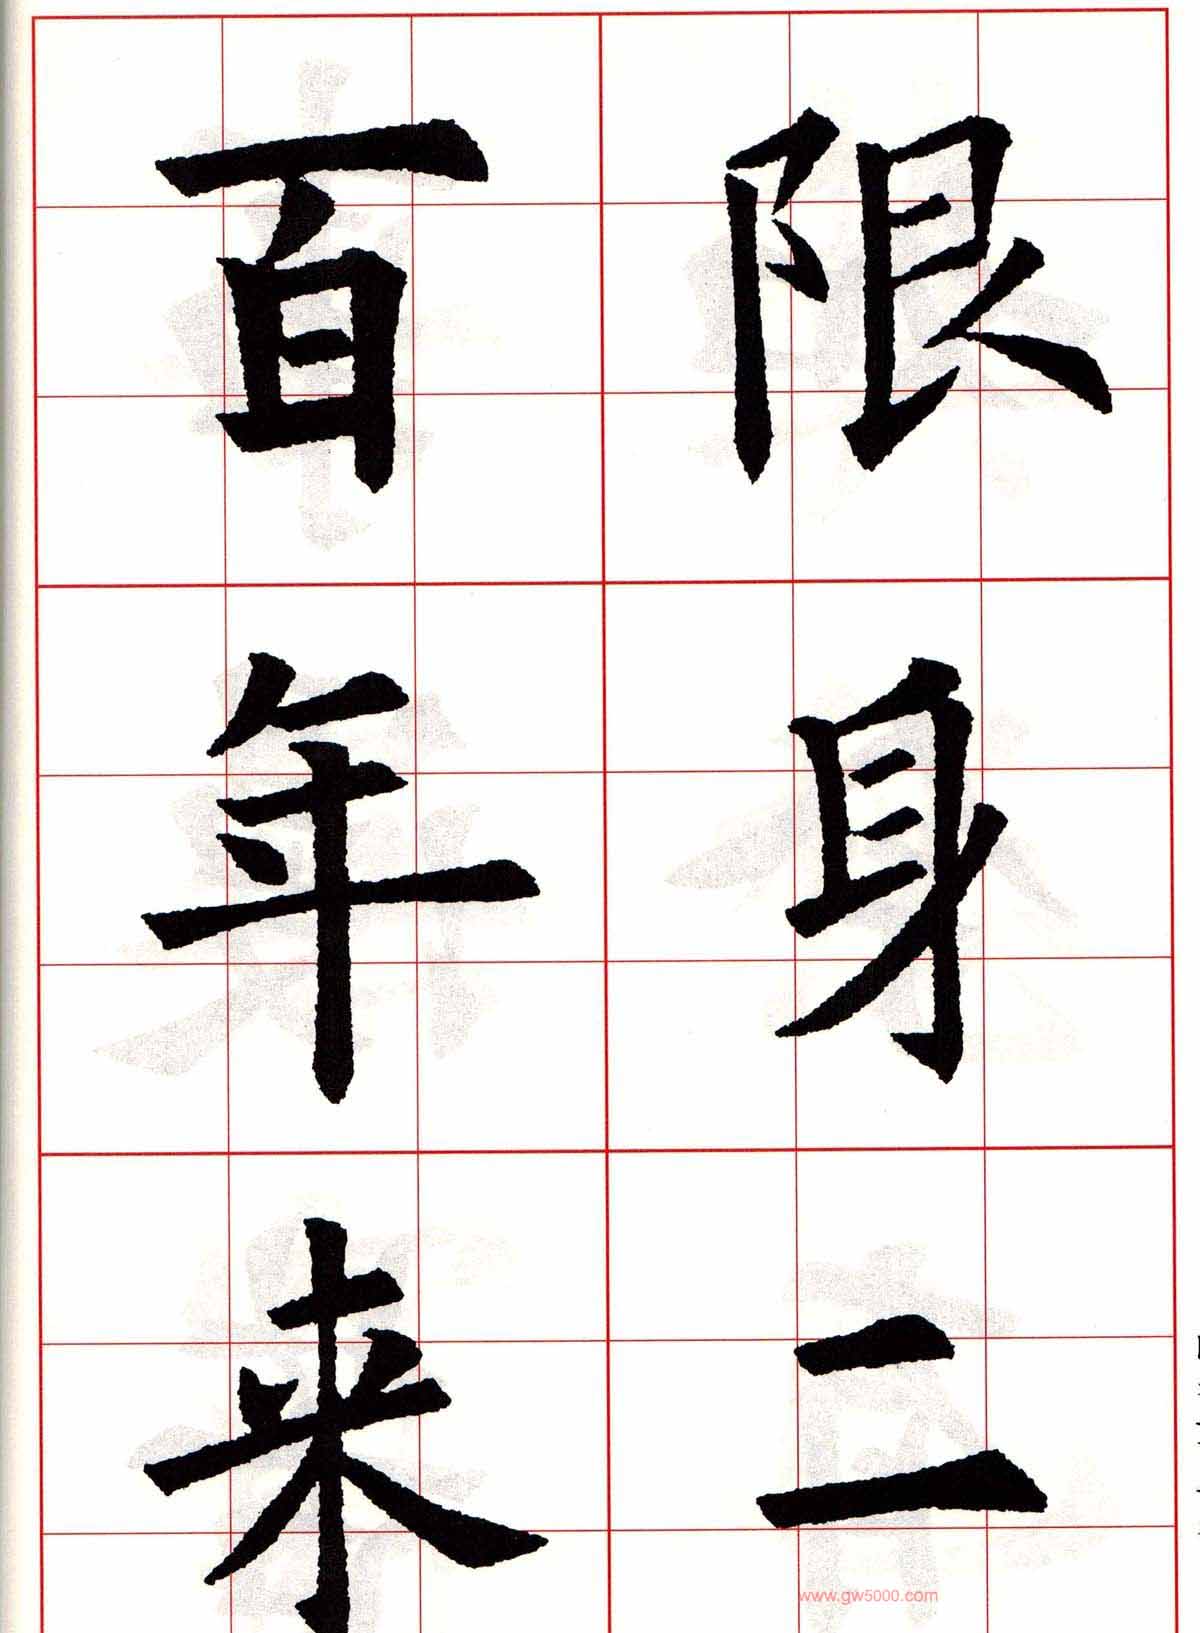 限身二
百年来
www.gw5000.com